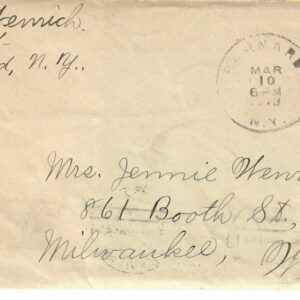 Henrich.
d, N. Y..
MAR
10
6-M
N.Y.
Mrs. Jennie Wen
861 Booth St.,
Milwaukee,